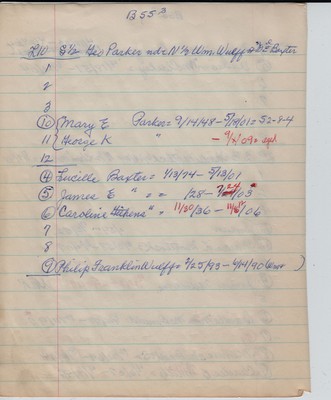 B 55³
L10 S½ Geo Parker ndr N½ Wm. Wulff Baxter
1
2
3
10 Mary E Parker = 9/14/48 – 5/19/01 = 52-8-4
11 George K " –
12
4 Lucille Baxter = 1/13/74 – 5/13/01
5 James E " = = 1/28 – /03
6 Caroline " = 11/30/36 – /06
7
8
9 Philip Franklin Wulff = 2/25/93 – 4/14/90 )